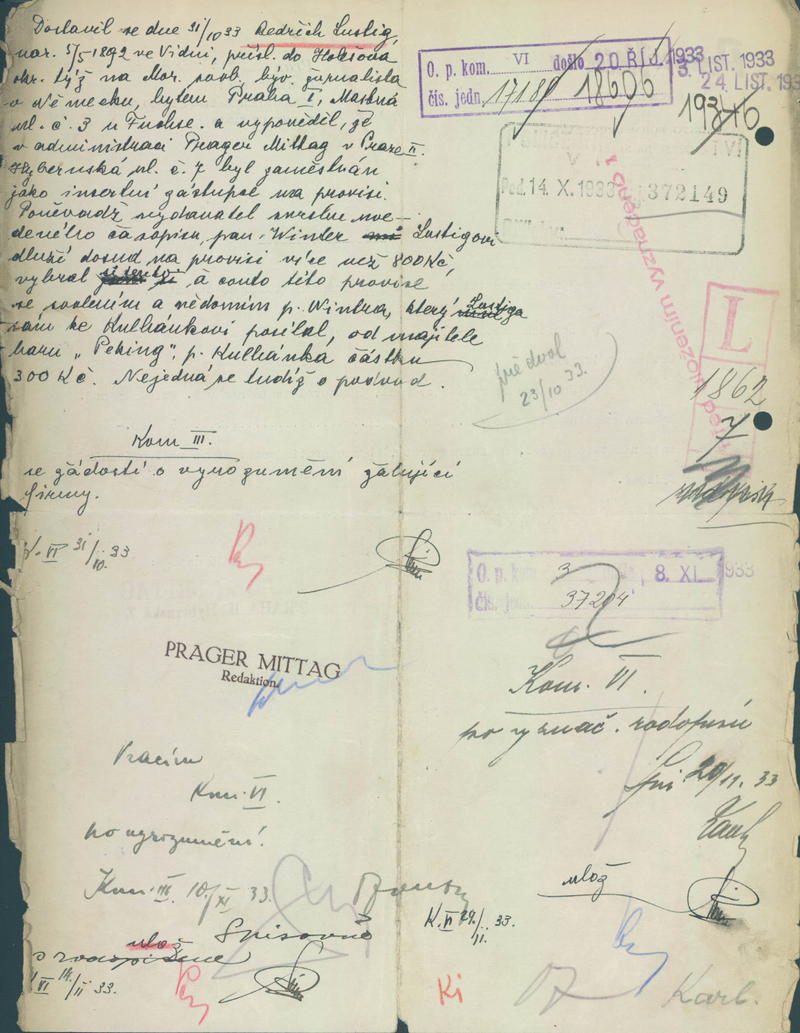 Dostavil se dne 31/10 33 Bedřich Lustig,
nar. 5/5-1892 ve Vídni, přísl. do Holešova
okr. týž na Mor. svob. býv. žurnalista
v Německu, bytem Praha I, Mastná
ul. č. 3 u Fuchse. a vypověděl, že
v administraci Prager Mittag v Praze II.
Hybernská ul. č. 7 byl zaměstnán
jako insertní zástupce na provisi.
Poněvadž vydavatel svrchu uve-
deného časopisu, pan Winter Lustigovi
dluží dosud na provisi více než 800 Kč,
vybral si tento à conto této provise
se svolením a vědomím p. Wintra, který Lustiga
sám ke Kulhánkovi posílal, od majitele
baru „Peking", p. Kulhánka částku
300 Kč. Nejedná se tudíž o podvod.
Kom III.
se žádostí o vyrozumění žalující
firmy.
K. VI 31/10. 33
PRAGER MITTAG
Redaktion
Vracím
Kom. VI.
po vyrozumění.
Kom. III. 10/XI 33.
ulož
VI 14/II 33.
O. p. kom. VI došlo 20. ŘÍJ. 1933
3. LIST. 1933
24. LIST. 1933
čís. jedn. 17181 18606
19376
Pod. 14. X. 1933 372149
předvol
23/10 33.
L
1862
7
O. p. kom. 3 došlo 8. XI. 1933
čís. jedn. 37204
Kom. VI.
po vyznač. v
20/11. 33
ulož
K. VI 29./11. 33.
Ki
Karb.